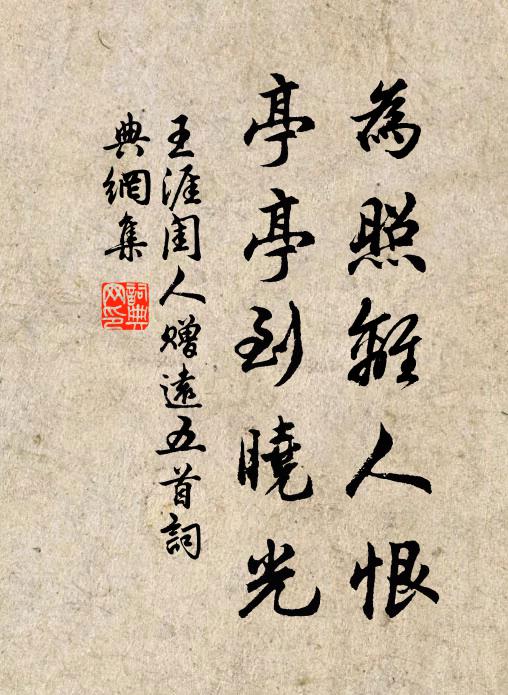 為照離人恨
亭亭到曉光
王涯閨人贈遠五首詞
典網集
詞典網印